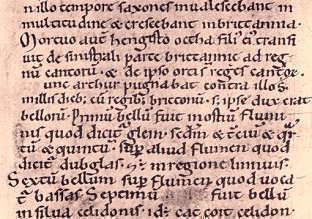 n illo tempore saxones inualescebant in
multitudine & crescebant in brittannia.
Mortuo aut̄ hengisto octha fili' ei' transi
uit de sinistrali parte brittannie ad reg
nū cantorū. & de ipso orti s̄ reges cantor̄.
Tunc arthur pugnabat contra illos
in illis dieb; cū regib; brittonū. s; ipse dux erat
bellorū. Primū bellū fuit in ostiū flumi
nis quod dicit' glein. sedm̄ & t̄ciū & q̄r
tū & quintū. sup̄ aliud flumen quod
dicit' dubglas. & ē in regione linnuis.
Sextū bellum sup̄ flumen quod uocat'
bassas. Septimū fuit bellū
in silua celidonis. id; cat coit celidon.